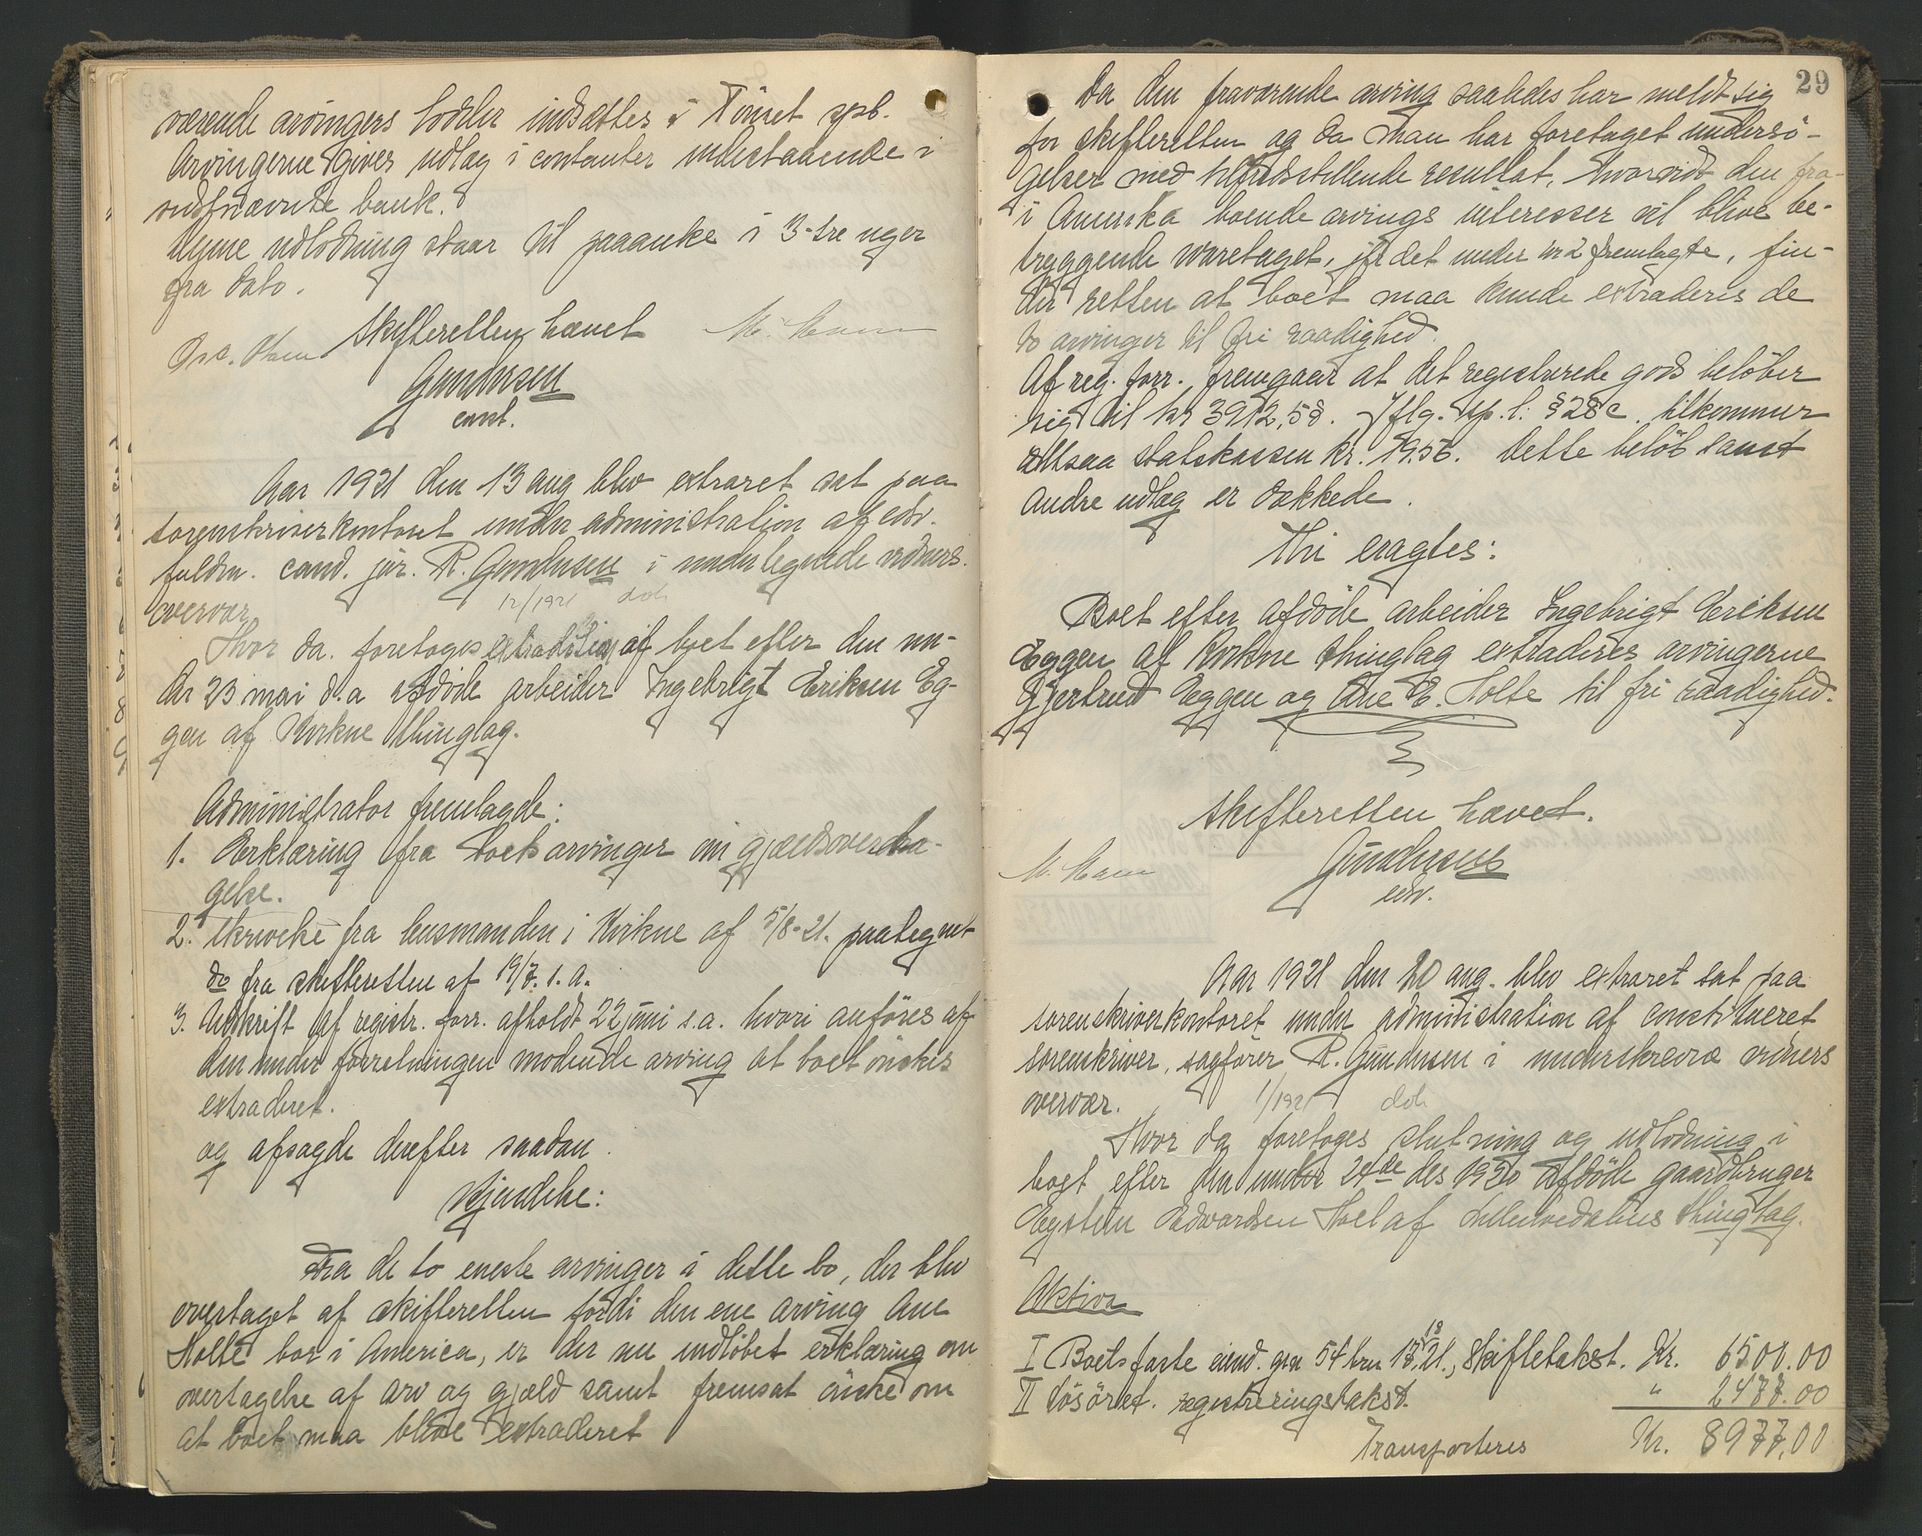 værende arvingers lodder indsættes i Tönset spb.
Arvingerne gives udlag i contanter indestaaende i
sidstnævnte bank.
Denne udlodning staar til paaanke i 3-tre uger
fra dato.
Skifteretten hævet
Gundersen
const.
Aar 1921 den 13 aug blev extraret sat paa
sorenskriverkontoret under administration af edsv.
fuldm. cand. jur. R. Gundersen i undertegnede vidners
overvær
12/1921 dok
Hvor da foretoges extradition af boet efter den un-
der 23 mai d.a afdöde arbeider Ingebrigt Eriksen Eg-
gen af Kvikne thinglag.
Administrator fremlagde:
1. Erklæring fra boets arvinger om gjældsoverdra-
gelse.
2. Skrivelse fra lensmanden i Kvikne af 5/8-21. paategnet
do fra skifteretten af 19/7. l. a.
3. Udskrift af registr. forr. afholdt 22 juni s.a. hvori anföres af
den under forretningen mödende arving at boet önskes
extraderet.
og afsagde derefter saadan
Kjendelse:
Fra de to eneste arvinger i dette bo, der blev
overtaget af skifteretten fordi den ene arving Ane
Holte bor i America, er der nu indlöbet erklæring om
overtagelse af arv og gjæld samt fremsat önske om
at boet maa blive extraderet
29
Da den fraværende arving saaledes har meldt sig
for skifteretten og da man har foretaget undersö-
gelser med tilfredsstillende resultat, hvorvidt den fra-
i Amerika boende arvings interesser vil blive be-
tryggende varetaget, jfr det under nr 2 fremlagte, fin-
der retten at boet maa kunde extraderes de
to arvinger til fri raadighed.
Af reg. forr. fremgaar at det registrerede gods belöber
sig til kr 3912,58. Iflg. sp. l. § 28 c. tilkommer
altsaa statskassen kr. 19.56. Dette belöb samt
andre udlæg er dækkede.
Thi eragtes:
Boet efter afdöde arbeider Ingebrigt Eriksen
Eggen af Kvikne thinglag extraderes arvingerne
Gjertrud Eggen og Ane E. Holte til fri raadighed.
Skifteretten hævet.
Gundersen
edsv.
Aar 1921 den 20 aug. blev extraret sat paa
sorenskriverkontoret under administration af constitueret
sorenskriver, sagförer R. Gundersen i underskrevne vidners
overvær.
1/1921 dok
Hvor da foretoges slutning og udlodning i
boet efter den under 24de des 1920 afdöde gaardbruger
Eystein Edvardsen Hoel af Lilleelvedalens thinglag.
Aktiva
I Boets faste eiend. gnr 54 bnr 18, 21., skiftetakst. Kr. 6500.00
II Lösöret. registreringstakst. " 2477.00
Transporteres Kr. 8977,00